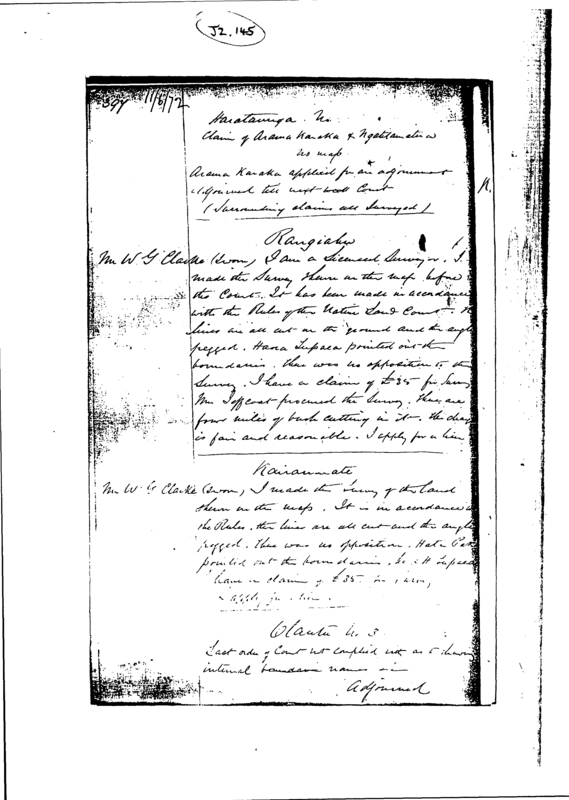 J2.145
397 11/6/72
Harataunga No.
Claim of Arama Karaka & Ngatitamatera
no map
Arama Karaka applied for an adjournment
adjourned till next Court
(Surrounding claims all Surveyed)
Rangiahu
Mr W G Clarke (Sworn) I am a licensed Surveyor. I
made the Survey shewn on the map before
the Court. It has been made in accordance
with the Rules of the Native Land Court. The
lines are all cut on the ground and the angles
pegged. pointed out the
boundaries. there was no opposition to the
Survey. I have a claim of £35 for Survey
Mr procured the Survey. there are
four miles of bush cutting in it. the
is fair and reasonable. I apply for a lien
Mr W G Clarke (Sworn) I made the Survey of the land
shewn on the map. It is in accordance with
the Rules. the lines are all cut and the angles
pegged. there was no opposition.
pointed out the boundaries.
I have a claim of £35
apply for a lien.
No. 3
Last order of Court not complied with as to
internal names
Adjourned